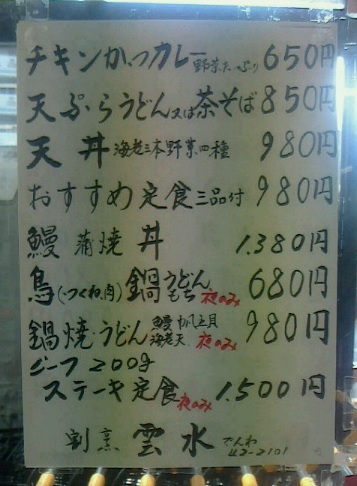 チキンかつカレー野菜たっぷり 650円
天ぷらうどん又は茶そば 850円
天丼 海老三本野菜四種 980円
おすすめ定食三品付 980円
鰻蒲焼丼 1.380円
鳥(つくね、肉)鍋 うどん もち 夜のみ 680円
鍋焼・うどん 鰻 帆立貝 海老天 夜のみ 980円
ビーフ200g
ステーキ定食 夜のみ 1.500円
割烹 雲水 でんわ 42-2101